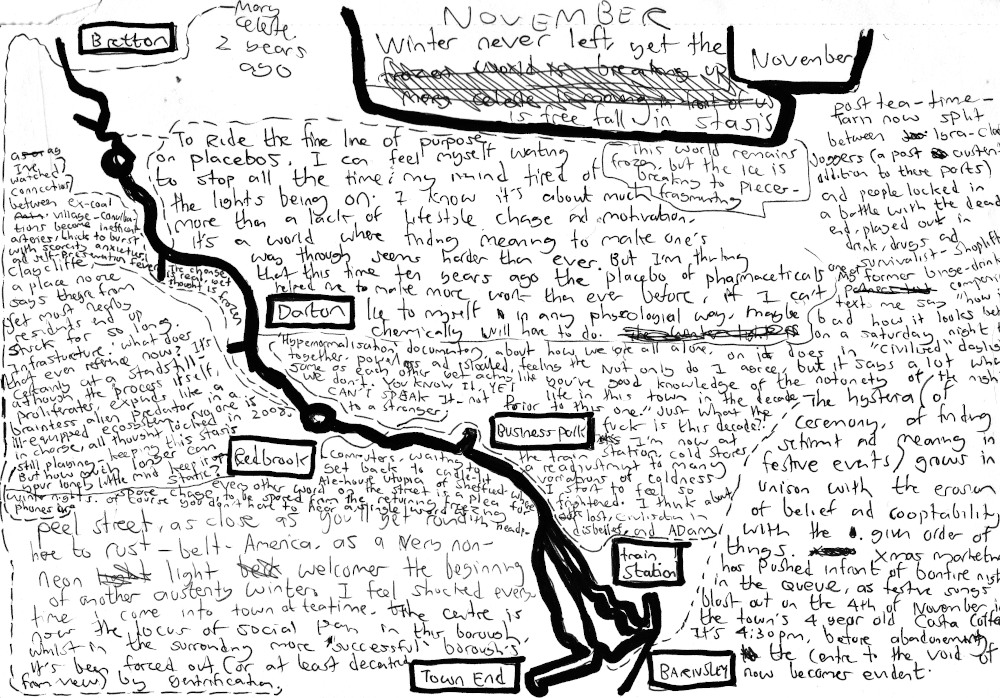 NOVEMBER
Winter never left, yet the
frozen world is breaking up
Mary Celeste is roaming in front of us
is free fall in stasis
November
Bretton
Mary
Celeste.
2 years
ago
To Ride the fine line of purpose,
on placebos. I can feel myself waiting
to stop all the time; my mind tired of
the lights being on. I know it's about much
more than a lack of lifestyle change and motivation.
It's a world where finding meaning to make one's
way through seems harder than ever. But I'm thinking
that this time ten years ago the placebo of pharmaceuticals
helped me to make more work than ever before, if I can't
lie to myself in any physiological way, maybe
chemically will have to do.
This world remains
frozen, but the ice is
breaking to pieces-
fragmenting
post tea-time-
Tarn now split
between lycra-clad
Joggers (a post austerity
addition to these parts)
and people locked in
a battle with the decade
end, played out in
drink, drugs and
survivalist-shoplifting
most
former binge-drink
companions
text me say "how
bad how it looks
on a saturday night
as it does in "civilised" daylight
Not only do I agree, but it says a lot
you've good knowledge of the notoriety of the night
life in this town in the decade
Prior to this one." Just what the
fuck is this decade?
watched
connections
between ex-coal
village-conurbations
become inefficient
arteries; thick to burst
with scarcity anxieties
and self-preservation fever
Its change
I treat, yet
thought is frozen
Claycliffe
a place no one
says they're from
yet most nearby
residents end up
stuck to so long.
Infrastructure: what does
that even refine now? It's
certainly at a standstill-
although the process itself,
proliferates, expands like a
brainless alien predator in a
ill-equipped ecosystem. No one is
in charge, all thought locked in 2008,
still playing at keeping this stasis
But how much longer can
your lonely little mind keep it static?
Darton
"Hypernormalisation, documentary, about how we are all alone.
together. powerless and isolated, feeling the
same as each other yet acting like
we don't. YOU KNOW IT, YET
CAN'T SPEAK IT- not
to a stranger
Redbrook
Business park
Commuters, waiting to
get back to candle-lit
Ale-house utopia
of Sheffield where
every other word on the street is a plea for
spare change, to be spared from the returning
winter nights. Of course you don't have to hear a single word if
It's I'm now at
the train station, cold stores
a readjustment to many
variations of coldness
I start to feel so
frightened. I think about
our lost, civilisation in
disbelief, and ADam
The hysteria of
Ceremony, of finding
sentiment and meaning in
festive events, grows in
unison with the erosion
of belief and cooptability
with the given order of
things. Xmas marketing
has pushed infront of bonfire night
in the queue, as festive songs
blast out on the 4th of November in
the town's 4 year old Costa Coffee
It's 4:30pm, before abandonment,
the centre to the void of
now becomes evident.
peel street, as close as you'll get round
here to rust-belt-America, as a very non-
neon light welcomer the beginning
of another austerity winter. I feel shocked every
time I come into town at teatime. The centre is
now the locus of social pain in this borough,
whilst in the surrounding more "successful" borough's
it's been forced out (or at least decanted
from view) by gentrification,
train
Station
Town End
BARNSLEY